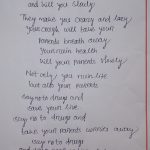 and kill you slowly
They make you crazy and lazy
your cough will leave your
Parents breath away
Your main health
Will your parents slowly
Not only you ruin life
but also your Parents
say no to drugs and
save your life
say no to drugs and
take your parents worries away
say no to drugs